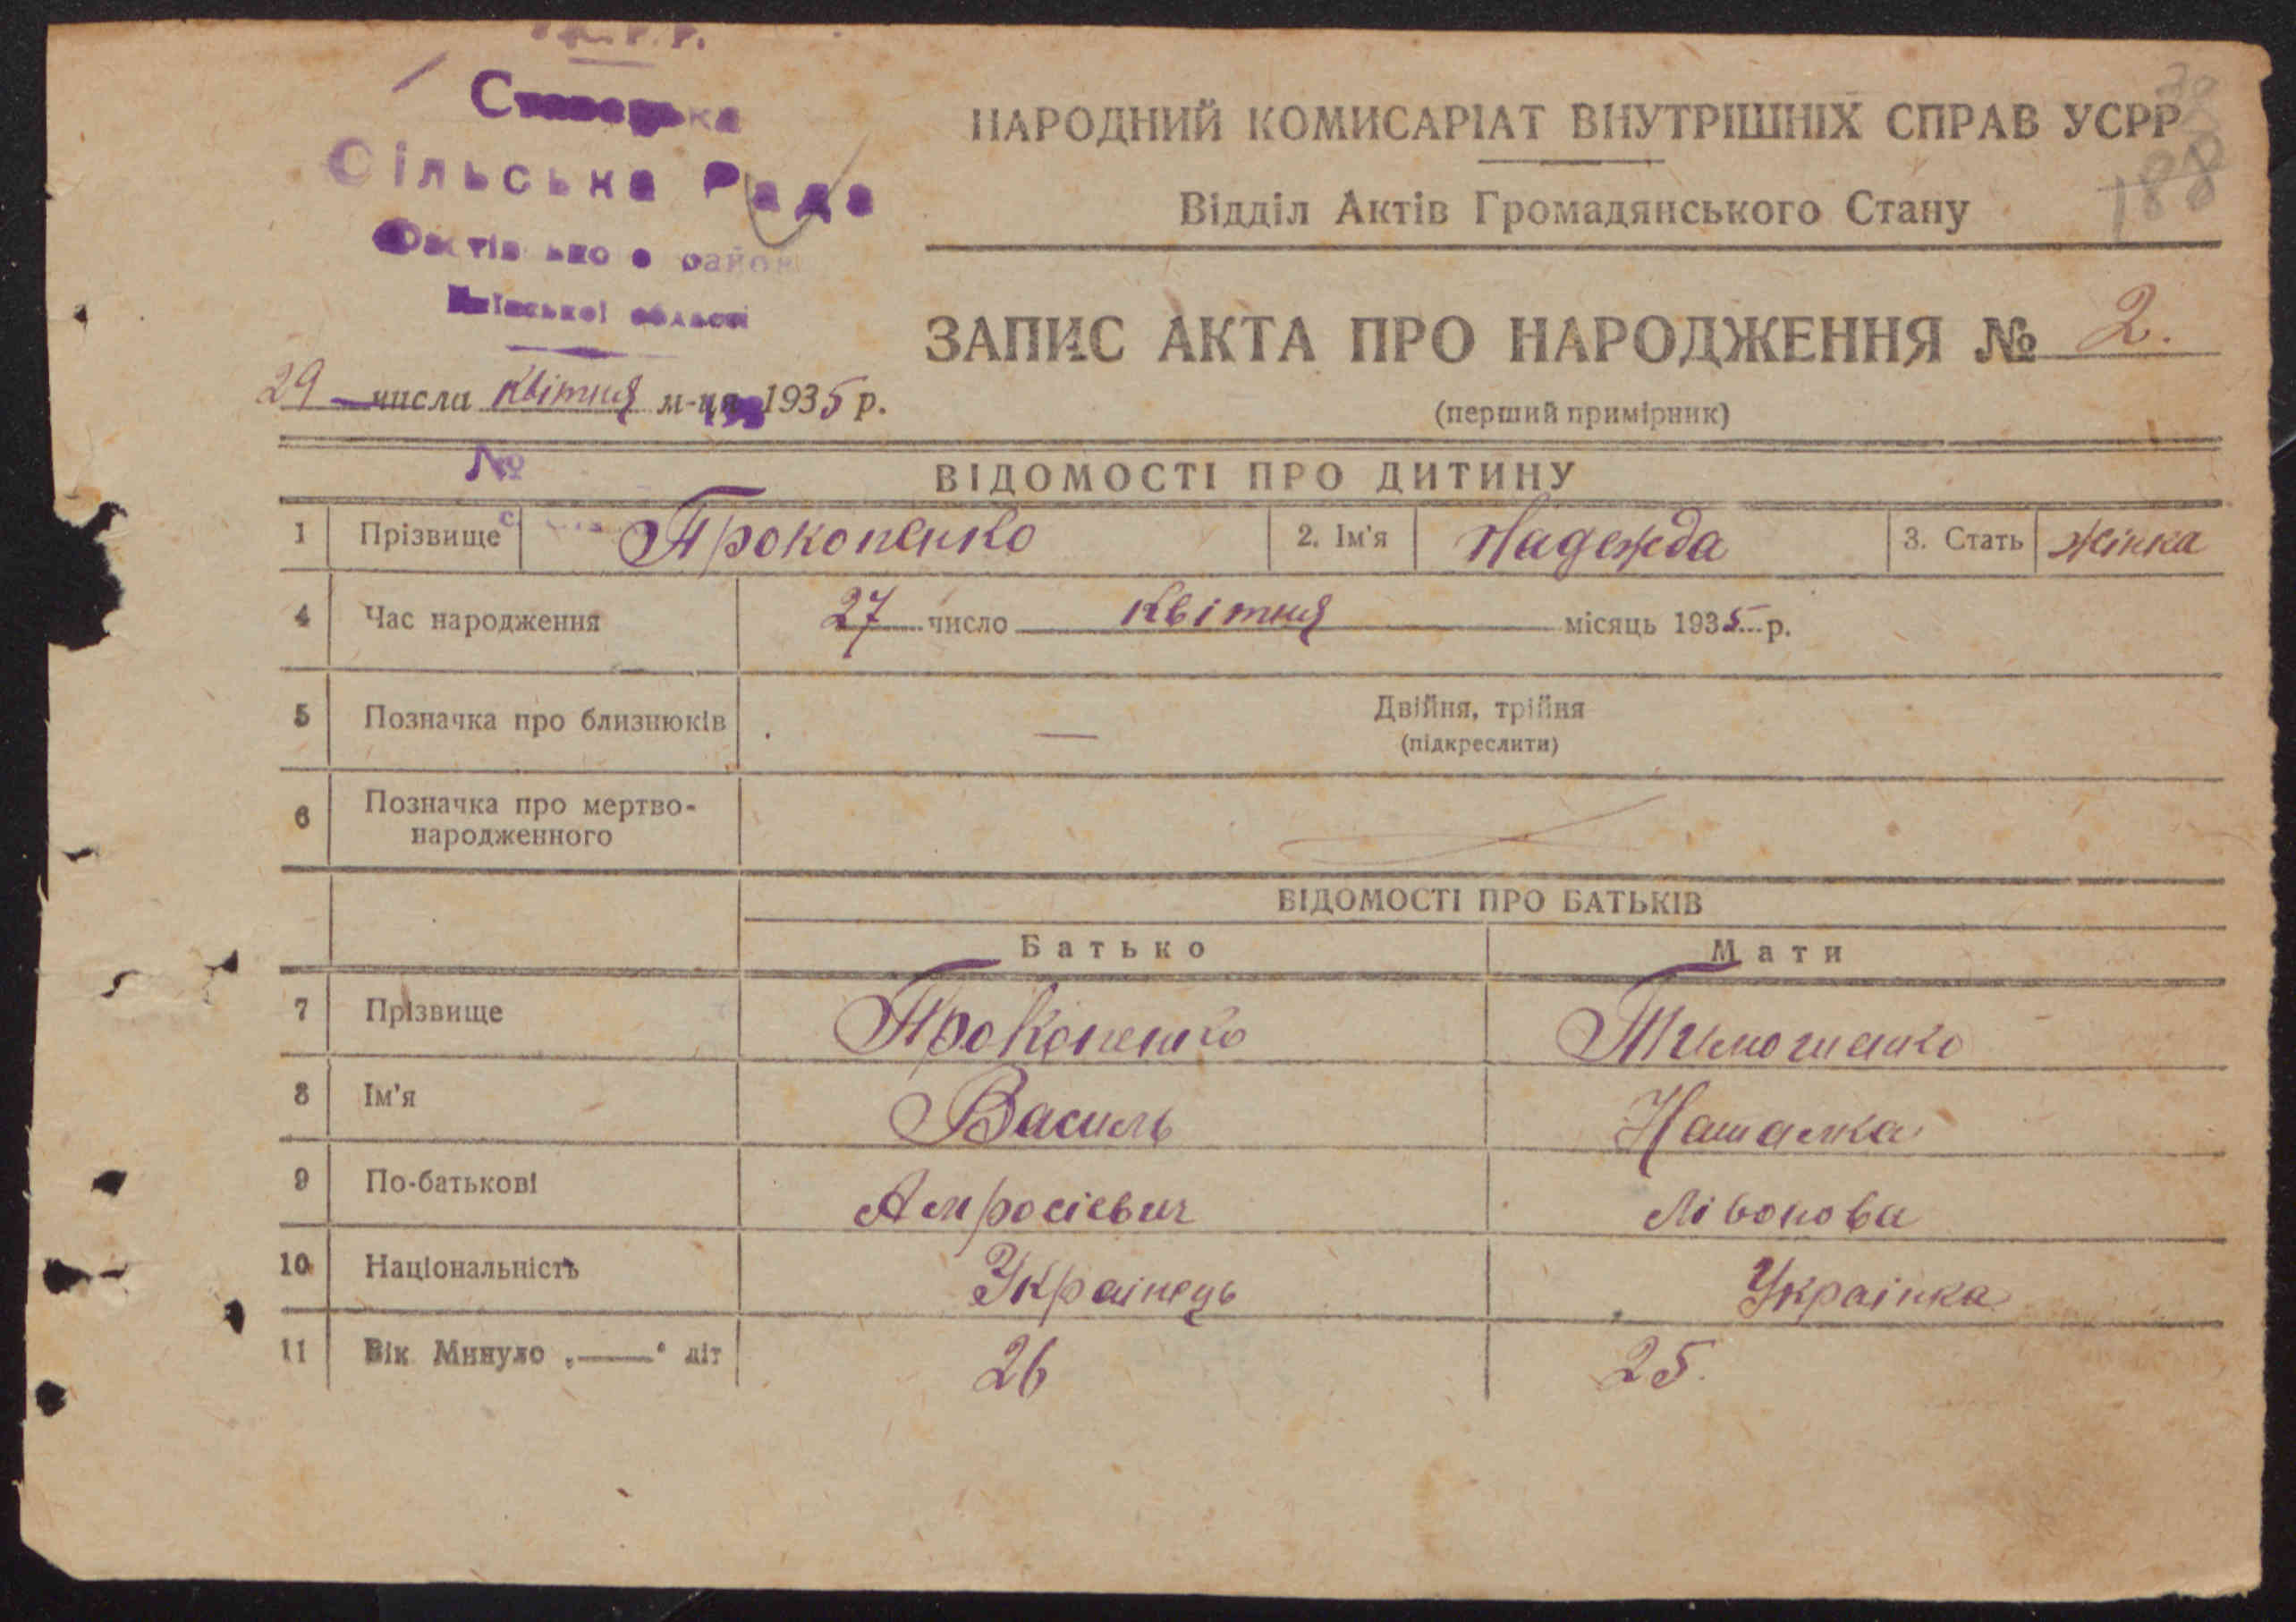 Сільська Рада
Фастівського району
Київської області
29 числа квітня м-ця 1935 р.
№
30
188
НАРОДНИЙ КОМИСАРІАТ ВНУТРІШНІХ СПРАВ УСРР
Відділ Актів Громадянського Стану
ЗАПИС АКТА ПРО НАРОДЖЕННЯ № 2.
(перший примірник)
ВІДОМОСТІ ПРО ДИТИНУ
1 Прізвище Прокопенко 2. Ім'я Надежда 3. Стать жінка
4 Час народження 27 число квітня місяць 1935 р.
5 Позначка про близнюків — Двійня, трійня
(підкреслити)
6 Позначка про мертво-
народженного
ВІДОМОСТІ ПРО БАТЬКІВ
Батько Мати
7 Прізвище Прокопенко Тимошенко
8 Ім'я Василь Наталка
9 По-батькові Амросієвич Лівонова
10 Національність Українець Українка
11 Вік Минуло „——" літ 26 25.